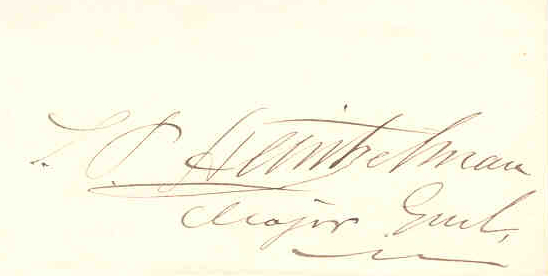 S. P. Heintzelman
Major Genl.